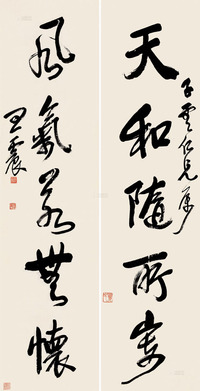 子雲仁兄屬
天和隨所
風氣若無懷
王震